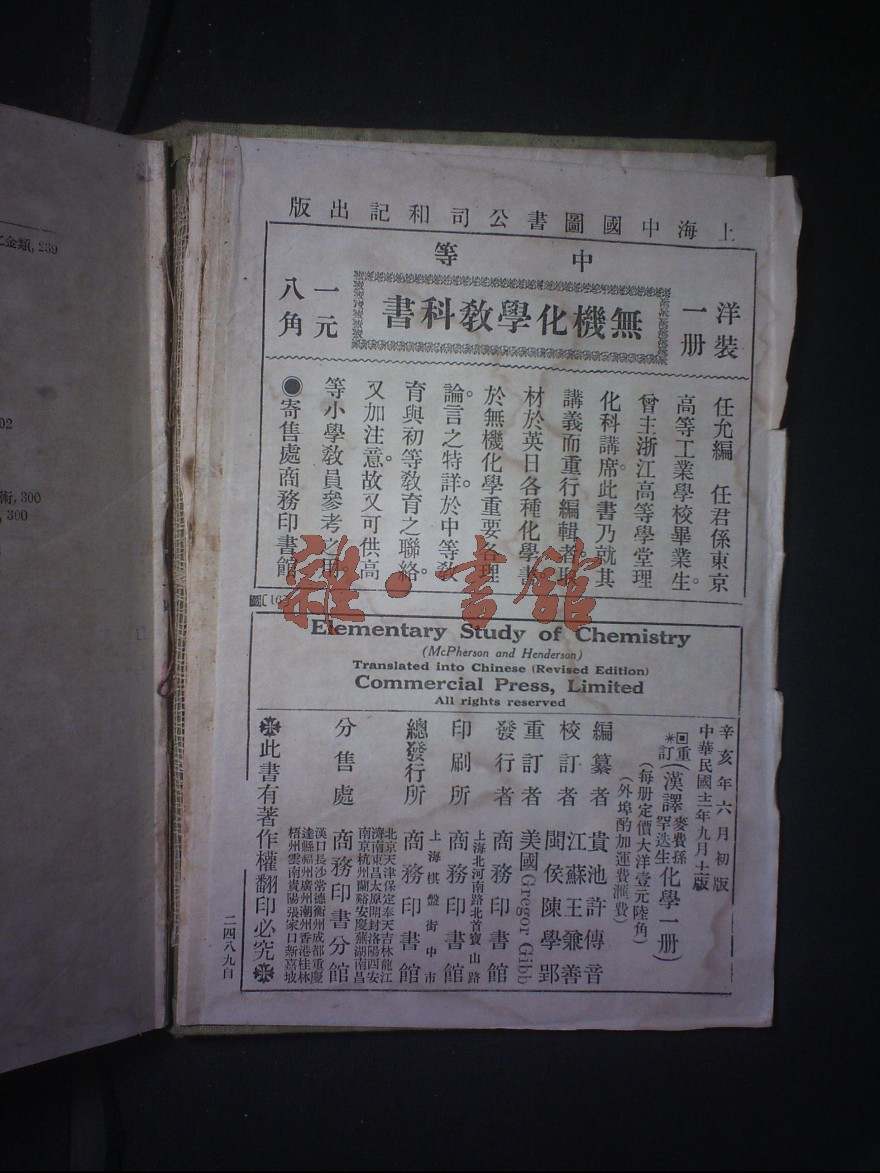 上海中國圖書公司和記出版
中等
洋裝
一册
無機化學教科書
一元
八角
任允編 任君係東京
高等工業學校畢業生。
曾主浙江高等學堂理
化科講席。此書乃就其
講義而重行編輯者。取
材於英日各種化學書。
於無機化學重要各理
論。言之特詳。於中等教
育與初等教育之聯絡。
又加注意。故又可供高
等小學教員參考之用。
●寄售處商務印書館
雜·書館
Elementary Study of Chemistry
(McPherson and Henderson)
Translated into Chinese (Revised Edition)
Commercial Press, Limited
All rights reserved
辛亥年六月初版
中華民國十二年九月十二版
重訂(漢譯麥費孫罕迭生化學一册)
(每册定價大洋壹元陸角)
(外埠酌加運費滙費)
編纂者 貴池許傳音
校訂者 江蘇王兼善
閩侯陳學郢
重訂者 美國Gregor Gibb
發行者 商務印書館
上海北河南路北首寶山路
印刷所 商務印書館
上海棋盤街中市
總發行所 商務印書館
北京天津保定奉天吉林龍江
濟南東昌太原開封洛陽西安
南京杭州蘭谿安慶蕪湖南昌
分售處 商務印書分館
漢口長沙常德衡州成都重慶
達縣福州廣州潮州香港桂林
梧州雲南貴陽張家口新嘉坡
此書有著作權翻印必究
二四八九自
金類, 239
02
術, 300
, 300